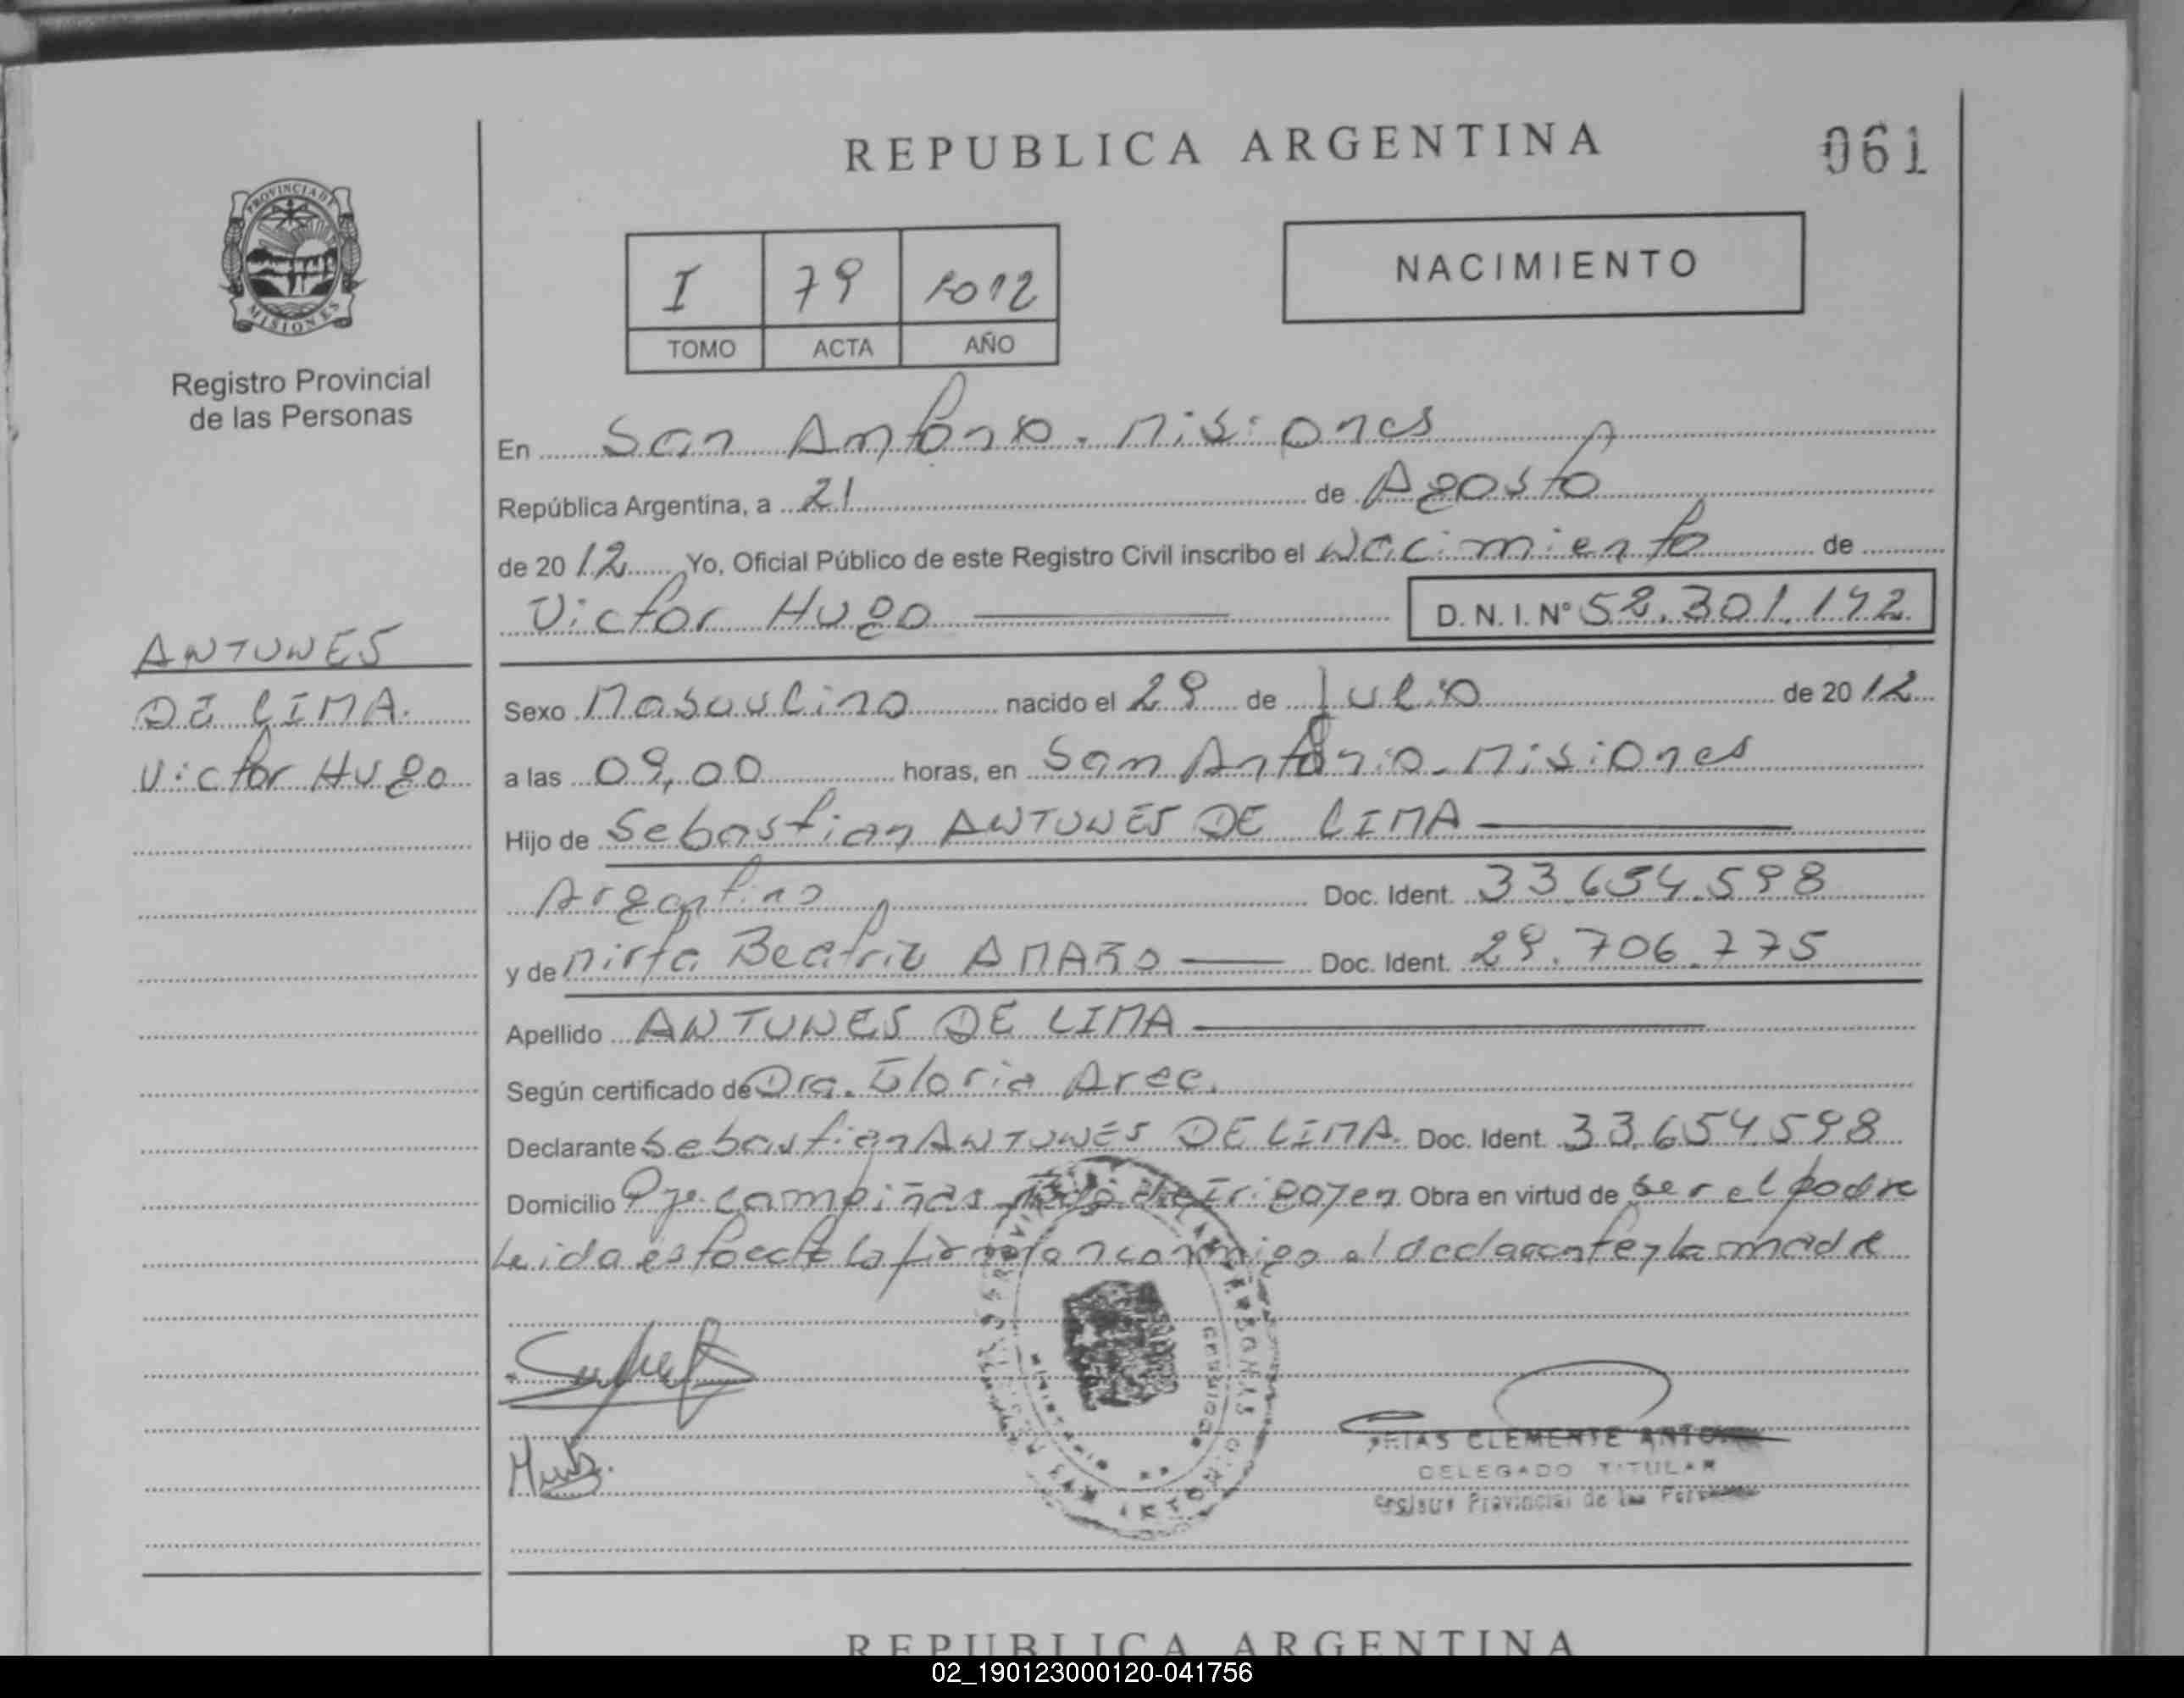 REPUBLICA ARGENTINA
061
PROVINCIA DE
MISIONES
Registro Provincial
de las Personas
I 79 2012
TOMO ACTA AÑO
NACIMIENTO
En San Antonio - Misiones
República Argentina, a 21 de Agosto
de 2012 Yo, Oficial Público de este Registro Civil inscribo el Nacimiento de
Victor Hugo D. N. I. Nº 52.301.142
ANTUNES
DE LIMA.
Victor Hugo
Sexo Masculino nacido el 29 de Julio de 2012
a las 09,00 horas, en San Antonio - Misiones
Hijo de Sebastian ANTUNES DE LIMA
Argentino Doc. Ident. 33.654.598
y de Mirta Beatriz AMARO Doc. Ident. 29.706.775
Apellido ANTUNES DE LIMA
Según certificado de Dra. Gloria Arec.
Declarante Sebastian ANTUNES DE LIMA. Doc. Ident. 33.654.598
Domicilio Pje. Campiñas de Irigoyen. Obra en virtud de ser el padre
Leida esta acta la firman conmigo el declarante y la madre
CLEMENTE
DELEGADO TITULAR
Provincial de las
REPUBLICA ARGENTINA
02_190123000120-041756